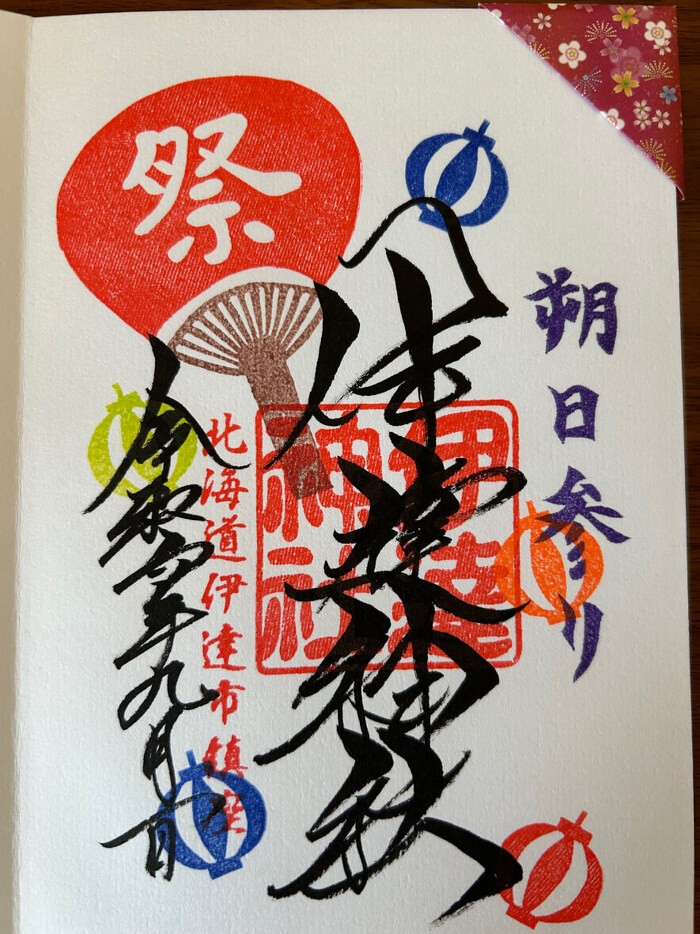 朔日参り
祭
伊達神社
伊達
神社
北海道伊達市鎮座
令和四年九月一日